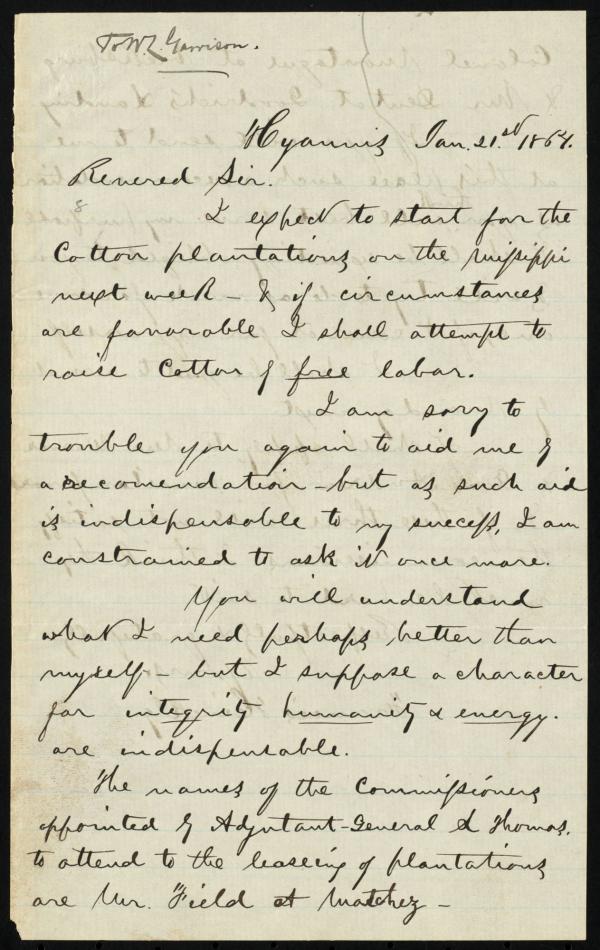 To W. L. Garrison.
Hyannis Jan. 21.st 1864.
Revered Sir.
8
I expect to start for the
Cotton plantations on the Missippi
next week - & if circumstances
are favorable I shall attempt to
raise Cotton by free labor.
I am sory to
trouble you again to aid me by
a recomendation - but as such aid
is indispensable to my success, I am
constrained to ask it once more.
You will understand
what I need perhaps better than
myself - but I suppose a character
for integrity humanity & energy.
are indispensable.
The names of the Commissioners
appointed by Adjutant-General L Thomas.
to attend to the leaseing of plantations
are Mr. Field at Natchez -